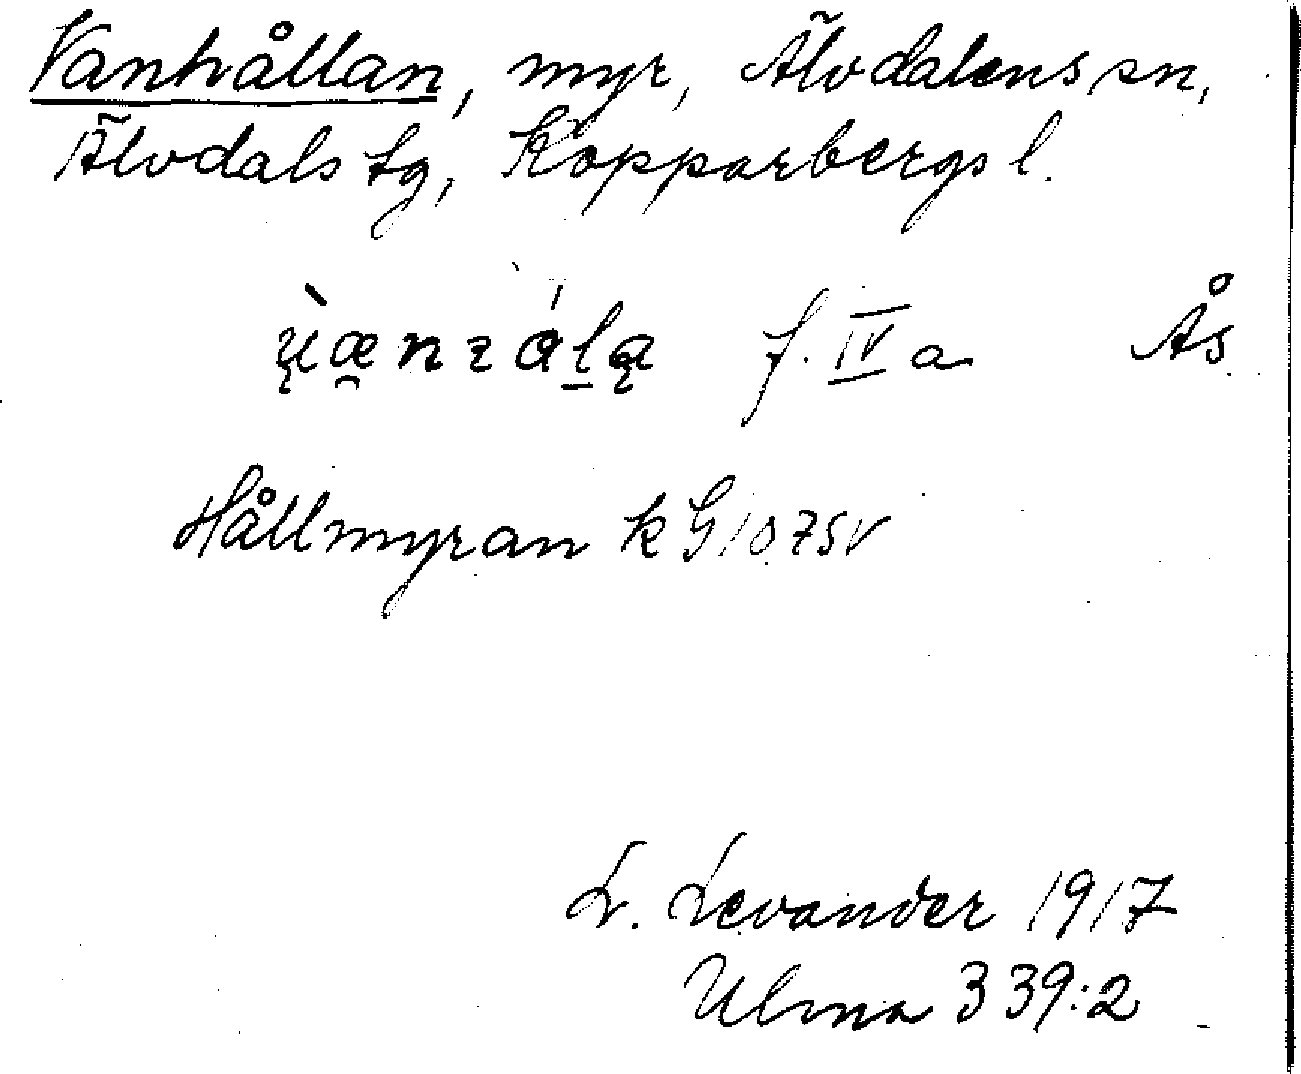 Vanhållan, myr, Älvdalens sn,
Älvdals tg, Kopparbergs l.
f. IV a Ås
Hållmyran k G 10 7SV
L. Levander 1917
Ulma 339:2